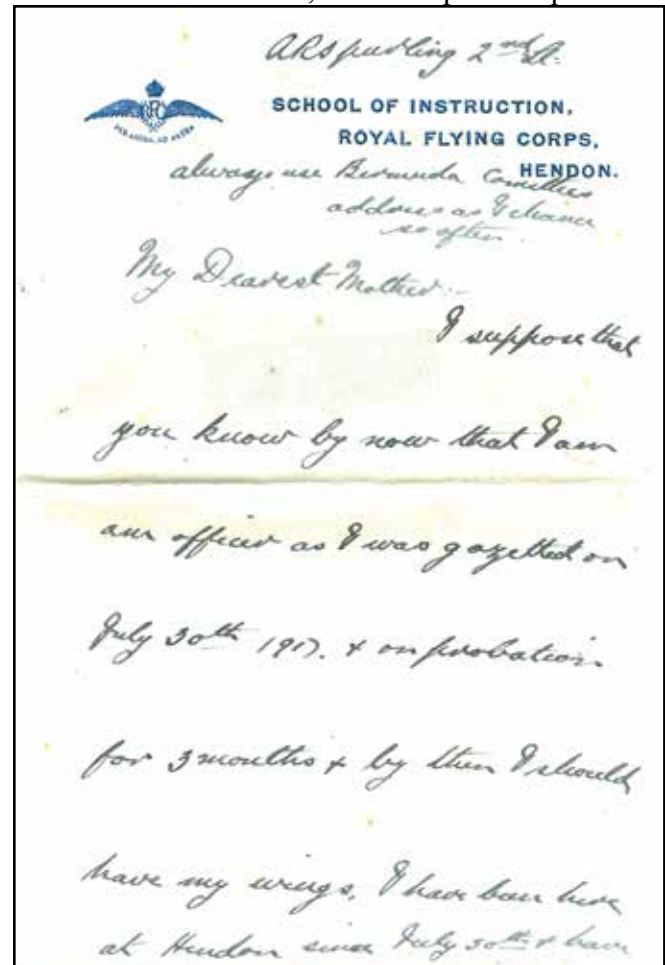 ARSpurling 2nd Lt.
SCHOOL OF INSTRUCTION,
ROYAL FLYING CORPS,
HENDON.
RFC
PER ARDUA AD ASTRA
always use Bermuda
address as I
so often.
My Dearest Mother:-
I suppose that
you know by now that I am
an officer as I was gazetted on
July 30th 1917. & on probation
for 3 months & by then I should
have my wings, I have been here
at Hendon since July 30th & have